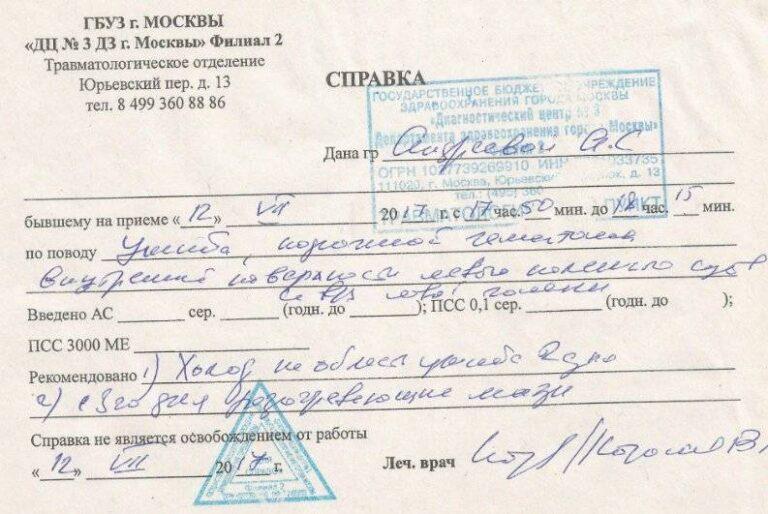 ГБУЗ г. МОСКВЫ
«ДЦ № 3 ДЗ г. Москвы» Филиал 2
Травматологическое отделение
Юрьевский пер. д. 13
тел. 8 499 360 88 86
СПРАВКА
ГОСУДАРСТВЕННОЕ БЮДЖЕ УЧРЕЖДЕНИЕ
ЗДРАВООХРАНЕНИЯ ГОРОДА МОСКВЫ
«Диагностический центр № 3
Департамента здравоохранения города Москвы»
Дана гр Андреевой А.С
ОГРН 1027739269910 ИНН 033735
111020, г. Москва, Юрьевский д. 13
тел. (495) 360
ПУНКТ
бывшему на приеме «12» VII 2017 г. с 17 час. 50 мин. до 18 час. 15 мин.
по поводу Ушиба, подкожной гематома
внутренней поверхности левого коленного суст
и в/з левой голени
Введено АС сер. (годн. до ); ПСС 0,1 сер. (годн. до );
ПСС 3000 МЕ
Рекомендовано 1) Холод на область ушиба 2 дня
2) с 3го дня разогревающие мази
Справка не является освобождением от работы
«12» VII 2017 г. Леч. врач
Филиал 2